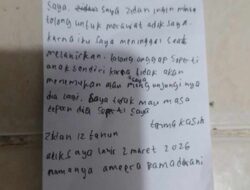 Saya, saya Zidan ingin minta
tolong untuk merawat adik saya.
karna ibu saya meninggal saat
melahirkan. tolong anggap seperti
anak sendiri karna tidak akan
menemukan atau mengunjungi nya
saya
dia lagi. saya tidak mau masa
depan dia seperti saya
terima kasih
Zidan 12 tahun
adik saya lahir 2 maret 2026
namanya ameera ramadhani